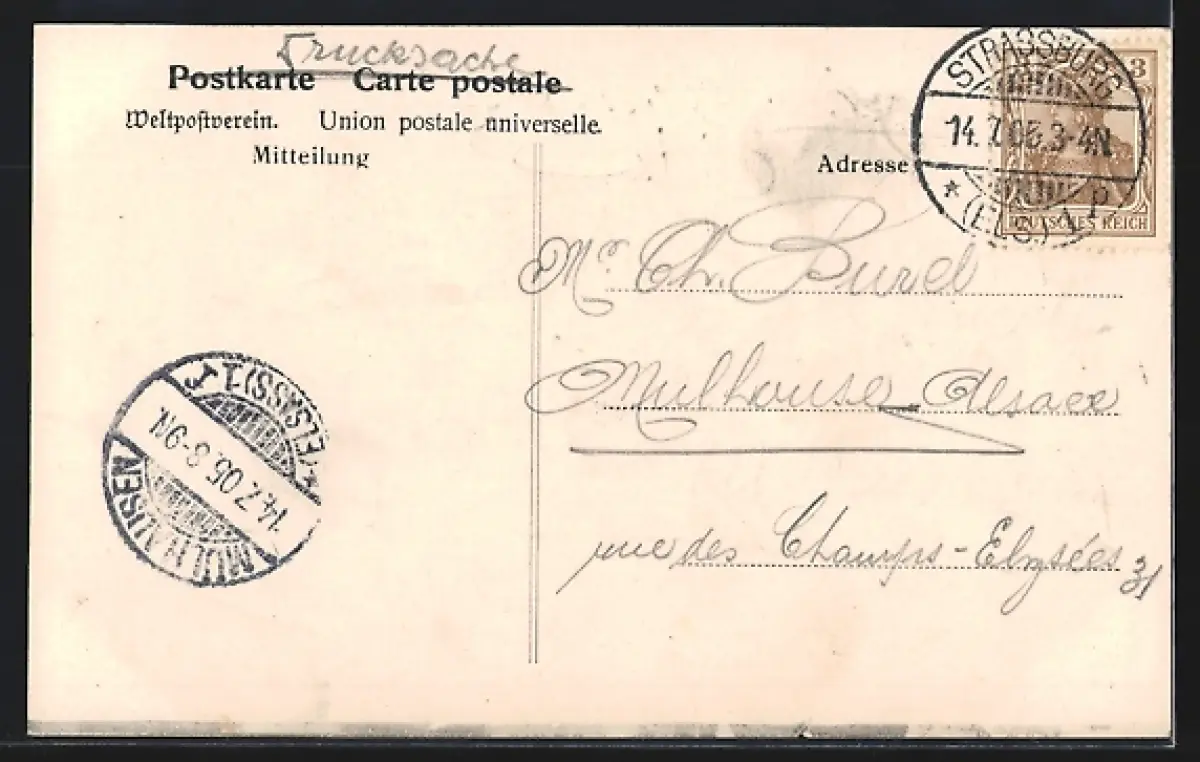 Drucksache
Postkarte Carte postale
Weltpostverein. Union postale universelle.
Mitteilung
Adresse
STRASSBURG
14.7.06.3-4N
* (ELS.) 1 p
3
DEUTSCHES REICH
Mr Ch. Burel
Mulhouse Alsace
rue des Champs-Elysées 31
MÜLHAUSEN
14.7.06. 8-9N.
* (ELSASS) 1